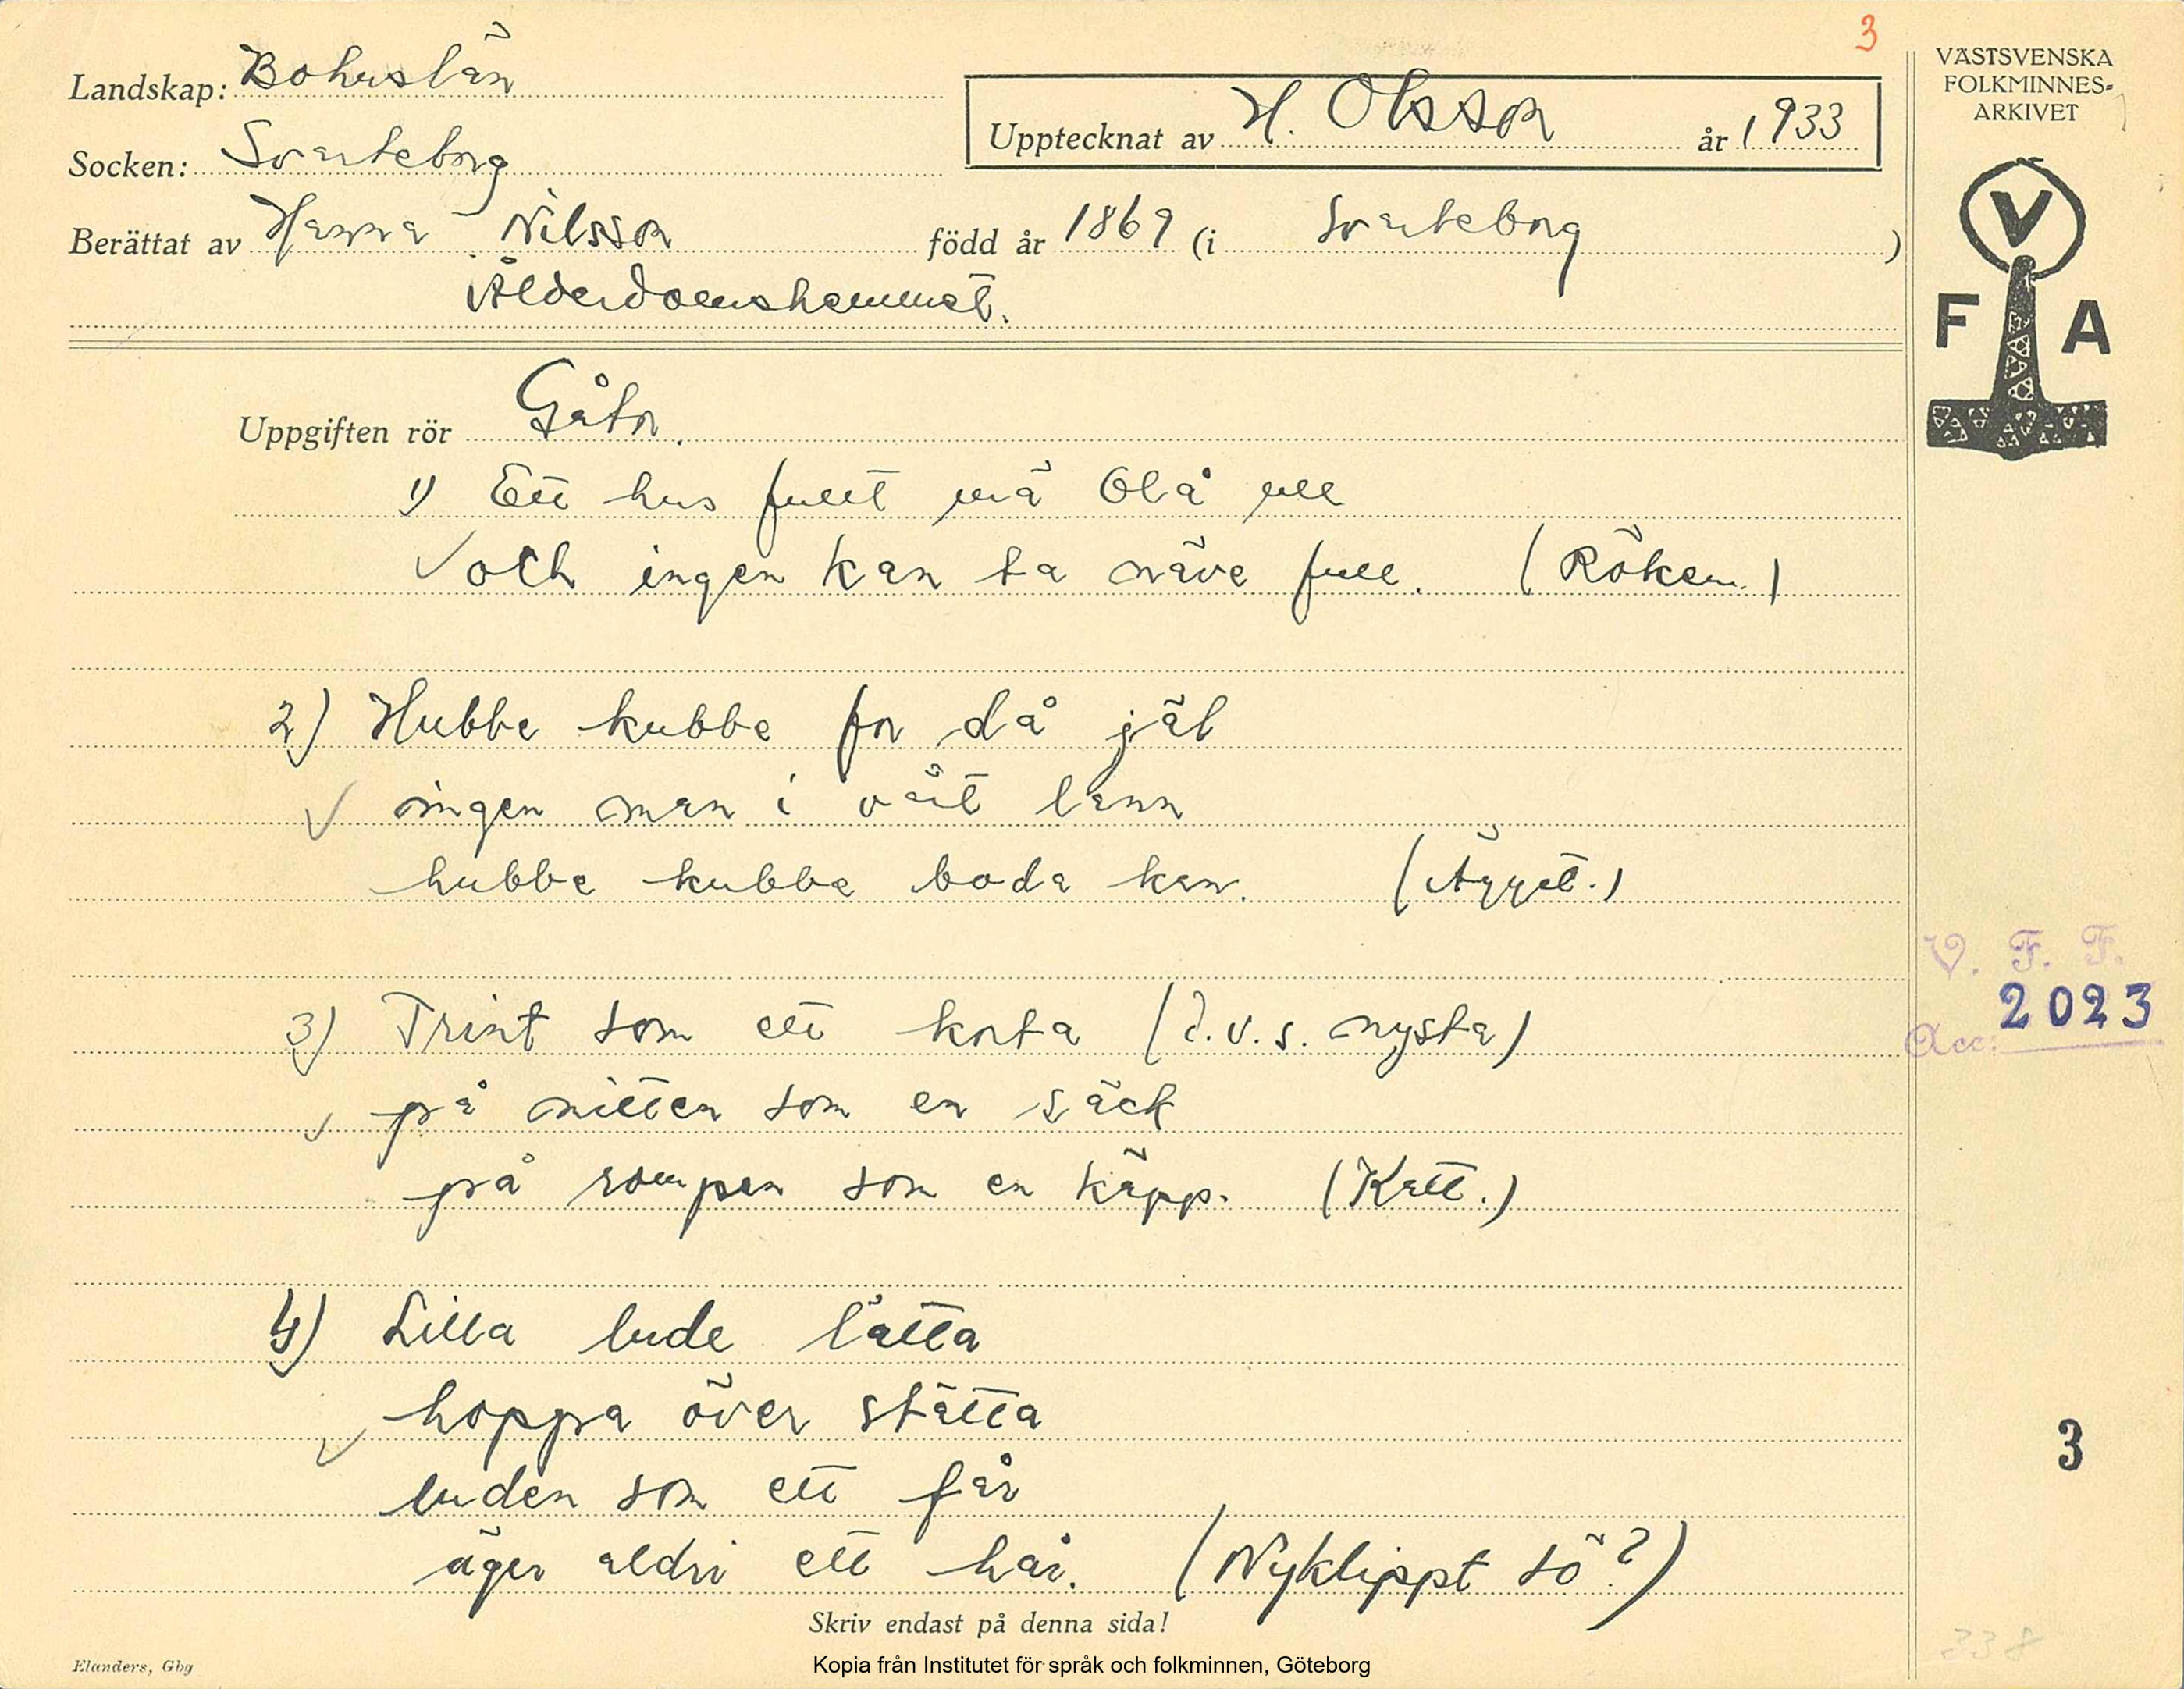 3
Landskap: Bohuslän
Socken: Svarteborg
Upptecknat av H. Olsson år 1933
Berättat av Hanna Nilsson född år 1869 (i Svarteborg)
Ålderdomshemmet.
VÄSTSVENSKA
FOLKMINNES-
ARKIVET
V
F A
Uppgiften rör Gåtor.
1) Ett hus fullt mä Olå ull
och ingen kan ta näve full. (Röken.)
2) Hubbe kubbe for då jäl
ingen man i vårt lann
hubbe kubbe boda kan. (Ägget.)
3) Trint som ett korta (d.v.s. nysta)
på mitten som en säck
på rompen som en käpp. (Katt.)
4) Lilla lude lätta
hoppa över stätta
luden som ett får
äger aldri ett hår. (Nyklippt sö?)
V. F. F.
Acc: 2023
3
338
Skriv endast på denna sida!
Elanders, Gbg
Kopia från Institutet för språk och folkminnen, Göteborg